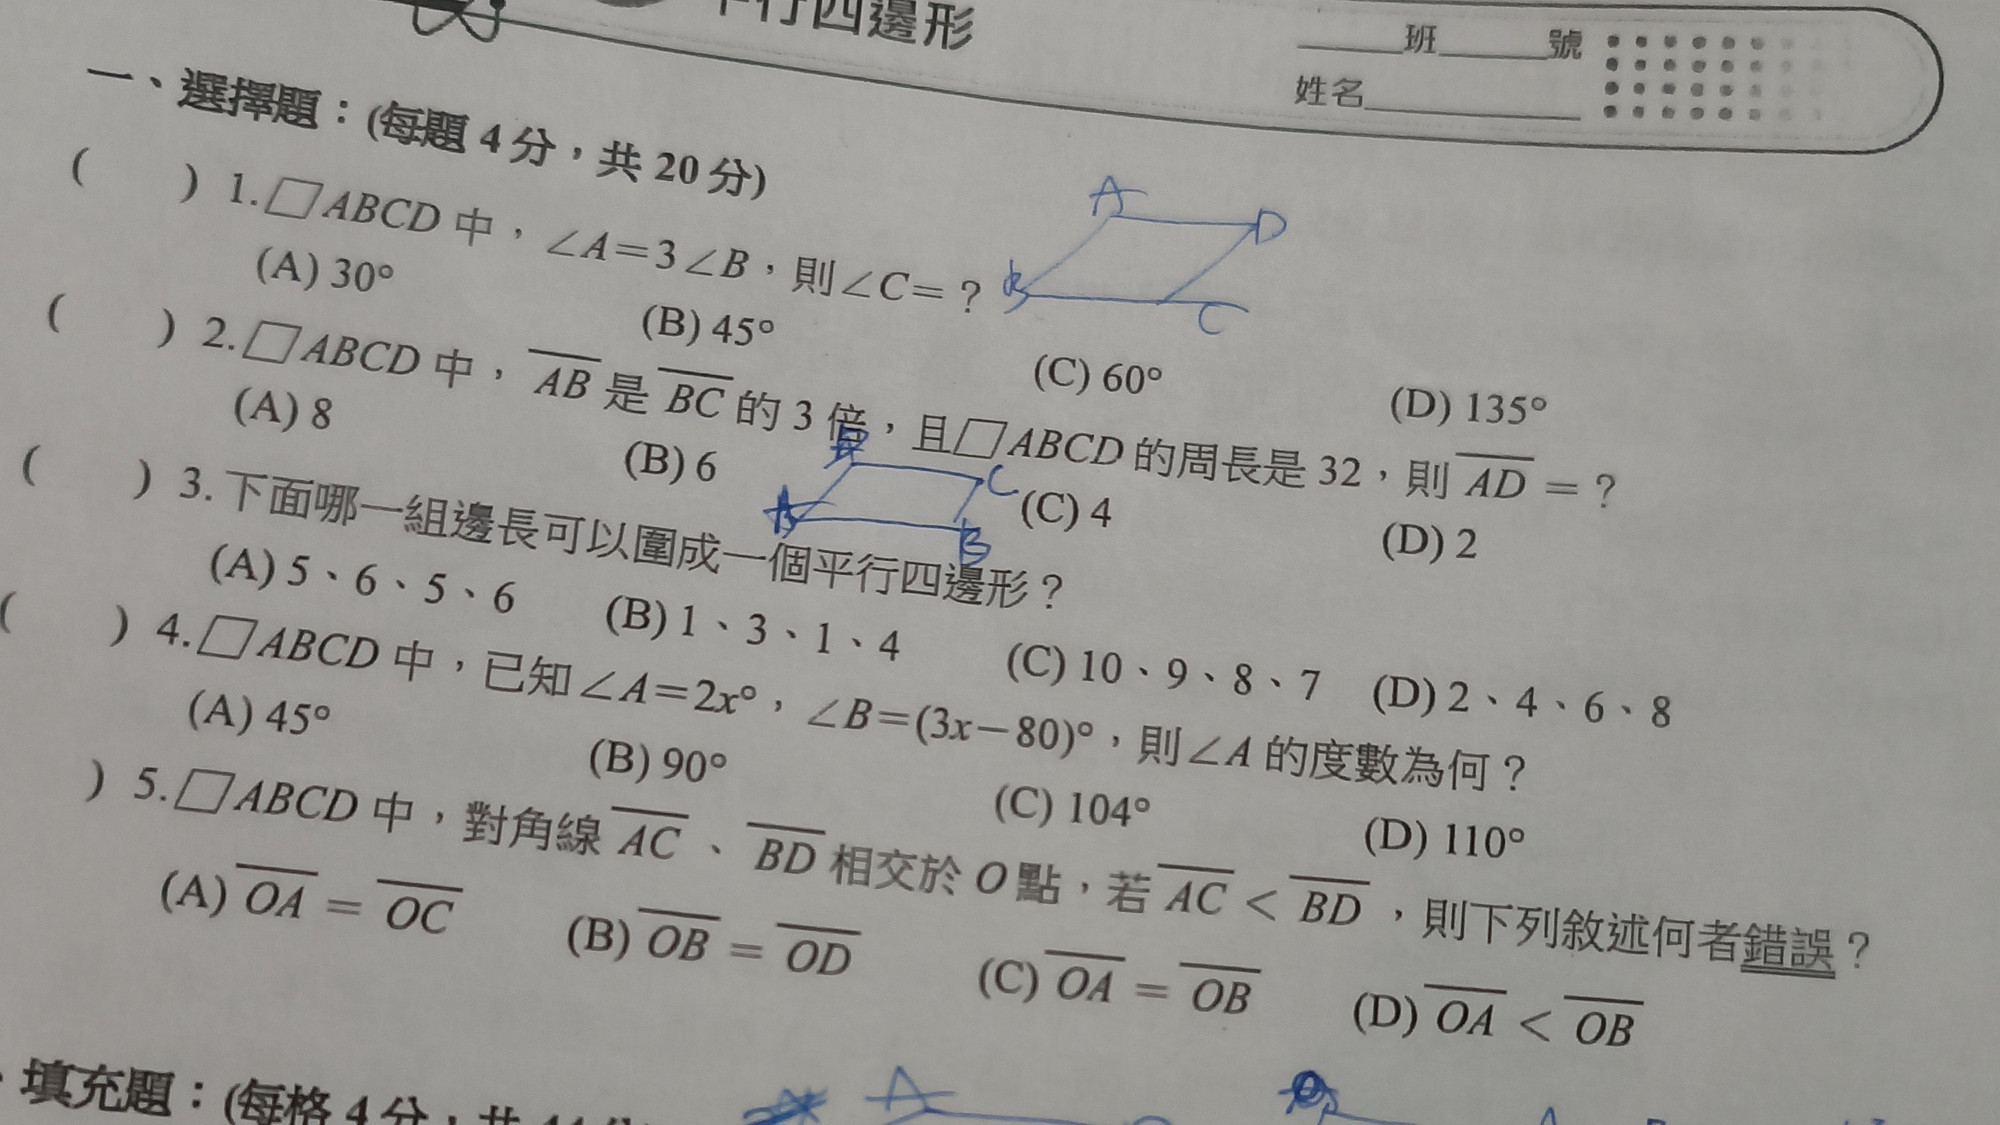 平行四邊形
班 號
姓名
一、選擇題：(每題 4 分，共 20 分)
( ) 1.▱ABCD 中，∠A＝3∠B，則∠C＝？
(A) 30° (B) 45° (C) 60° (D) 135°
A D
B C
( ) 2.▱ABCD 中，A̅B̅ 是 B̅C̅ 的 3 倍，且▱ABCD 的周長是 32，則 A̅D̅ ＝？
(A) 8 (B) 6 (C) 4 (D) 2
C
A B
( ) 3. 下面哪一組邊長可以圍成一個平行四邊形？
(A) 5、6、5、6 (B) 1、3、1、4 (C) 10、9、8、7 (D) 2、4、6、8
( ) 4.▱ABCD 中，已知∠A＝2x°，∠B＝(3x－80)°，則∠A 的度數為何？
(A) 45° (B) 90° (C) 104° (D) 110°
) 5.▱ABCD 中，對角線 A̅C̅ 、 B̅D̅ 相交於 O 點，若 A̅C̅ < B̅D̅ ，則下列敘述何者錯誤？
(A) O̅A̅ ＝ O̅C̅ (B) O̅B̅ ＝ O̅D̅ (C) O̅A̅ ＝ O̅B̅ (D) O̅A̅ < O̅B̅
、填充題：(每格 4 分，共 44 分
A